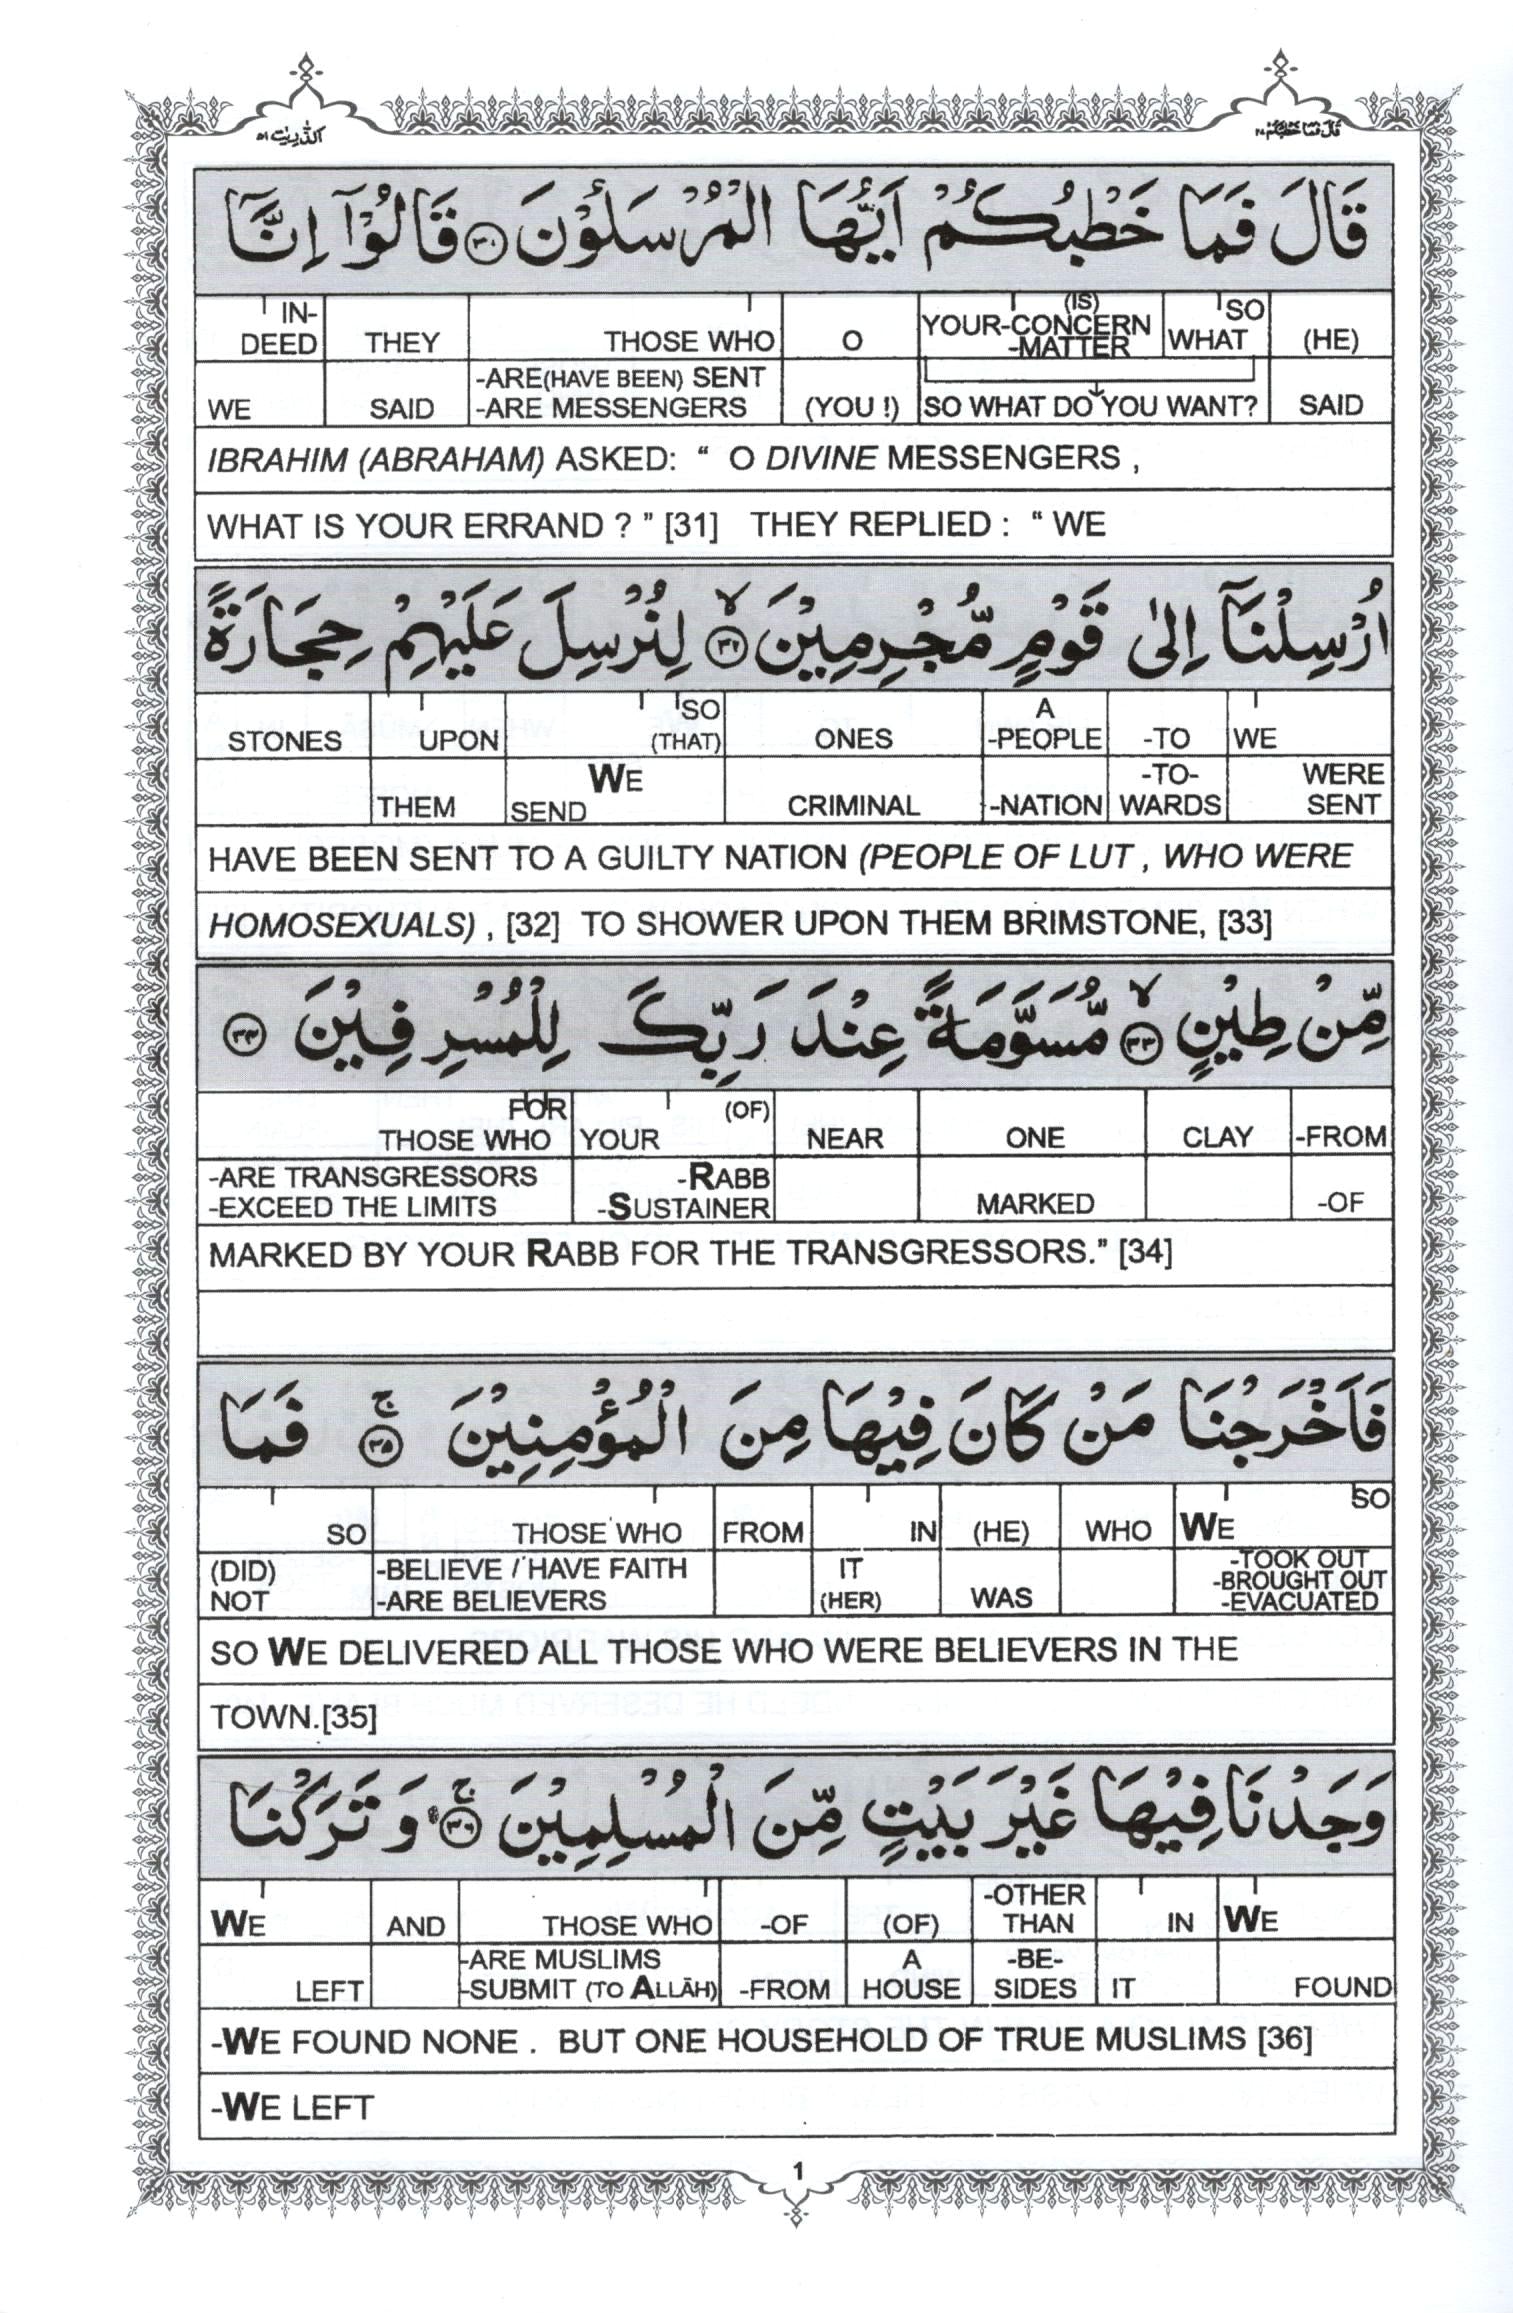 الذّٰریٰت ۵۱
قَالَ فَمَا خَطْبُكُمْ ۲۷
قَالَ فَمَا خَطْبُكُمْ اَيُّهَا الْمُرْسَلُوْنَ ۳۱ قَالُوْٓا اِنَّآ
IN- (IS) SO
DEED THEY THOSE WHO O YOUR-CONCERN -MATTER WHAT (HE)
WE SAID -ARE(HAVE BEEN) SENT -ARE MESSENGERS (YOU !) SO WHAT DO YOU WANT? SAID
IBRAHIM (ABRAHAM) ASKED: “ O DIVINE MESSENGERS ,
WHAT IS YOUR ERRAND ? ” [31] THEY REPLIED : “ WE
اُرْسِلْنَآ اِلٰى قَوْمٍ مُّجْرِمِيْنَ ۳۲ لا لِنُرْسِلَ عَلَيْهِمْ حِجَارَةً
SO A
STONES UPON (THAT) ONES -PEOPLE -TO WE
THEM WE SEND CRIMINAL -NATION -TO- WARDS WERE SENT
HAVE BEEN SENT TO A GUILTY NATION (PEOPLE OF LUT , WHO WERE
HOMOSEXUALS) , [32] TO SHOWER UPON THEM BRIMSTONE, [33]
مِّنْ طِيْنٍ ۳۳ لا مُّسَوَّمَةً عِنْدَ رَبِّكَ لِلْمُسْرِفِيْنَ ۳۴
FOR (OF)
THOSE WHO YOUR NEAR ONE CLAY -FROM
-ARE TRANSGRESSORS -RABB
-EXCEED THE LIMITS -SUSTAINER MARKED -OF
MARKED BY YOUR RABB FOR THE TRANSGRESSORS.” [34]
فَاَخْرَجْنَا مَنْ كَانَ فِيْهَا مِنَ الْمُؤْمِنِيْنَ ۳۵ ج فَمَا
SO
SO THOSE WHO FROM IN (HE) WHO WE
(DID) -BELIEVE / HAVE FAITH IT -TOOK OUT -BROUGHT OUT
NOT -ARE BELIEVERS (HER) WAS -EVACUATED
SO WE DELIVERED ALL THOSE WHO WERE BELIEVERS IN THE
TOWN.[35]
وَجَدْنَا فِيْهَا غَيْرَ بَيْتٍ مِّنَ الْمُسْلِمِيْنَ ۳۶ ج وَ تَرَكْنَا
-OTHER
WE AND THOSE WHO -OF (OF) THAN IN WE
-ARE MUSLIMS A -BE-
LEFT -SUBMIT (TO ALLĀH) -FROM HOUSE SIDES IT FOUND
-WE FOUND NONE . BUT ONE HOUSEHOLD OF TRUE MUSLIMS [36]
-WE LEFT
1